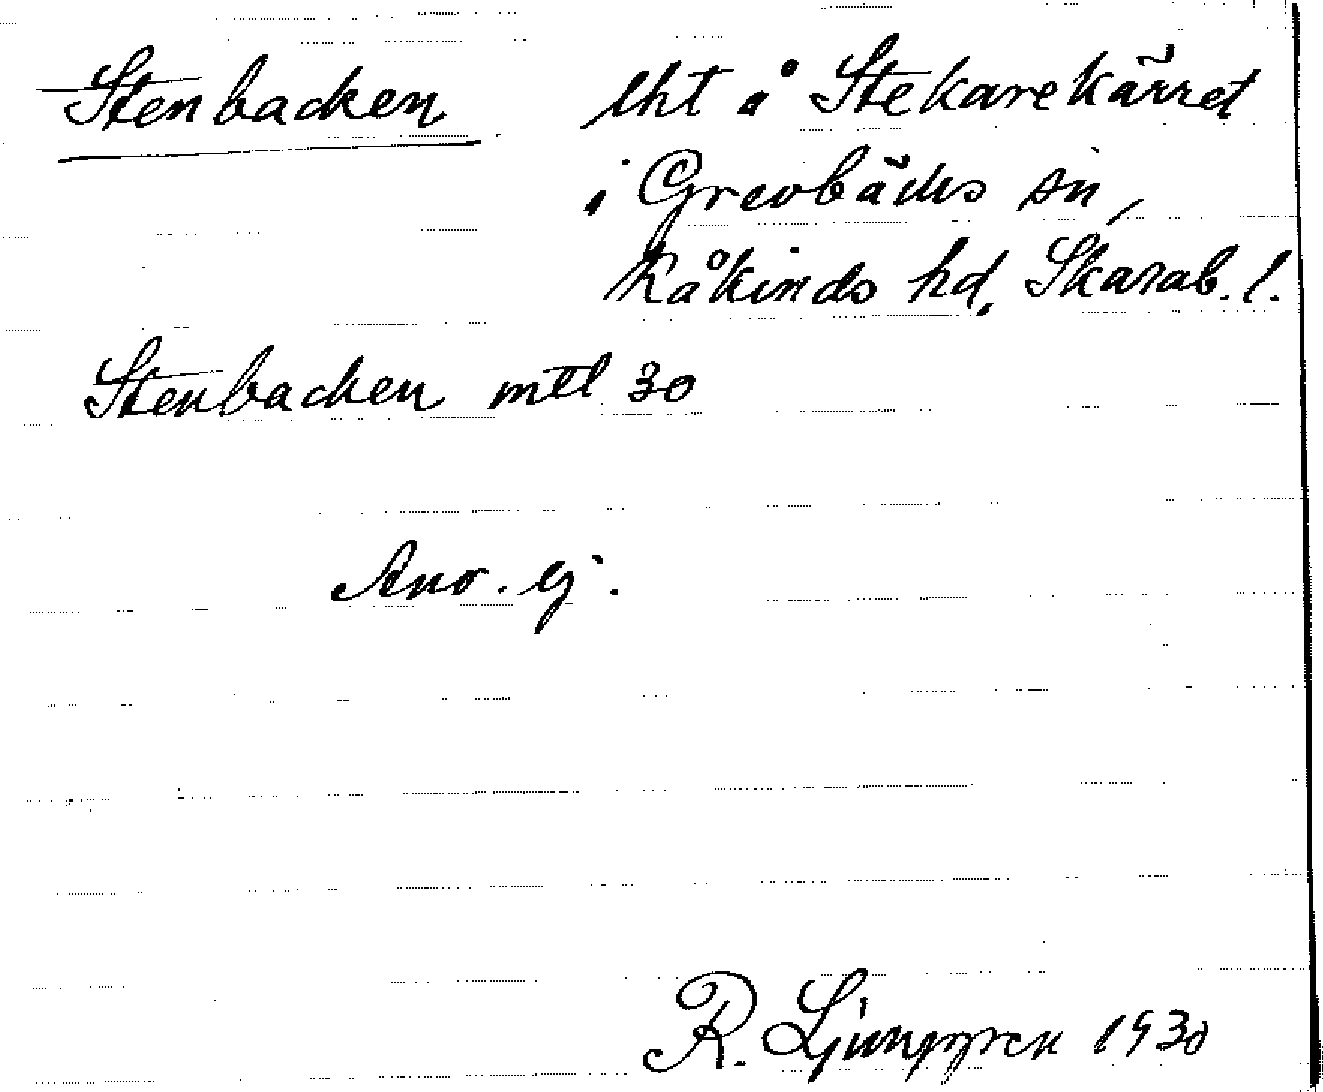 Stenbacken lht å Stekarekärret
i Grevbäcks sn,
Kåkinds hd, Skarab. l.
Stenbacken mtl 30
Ano. ej.
R. Ljunggren 1930